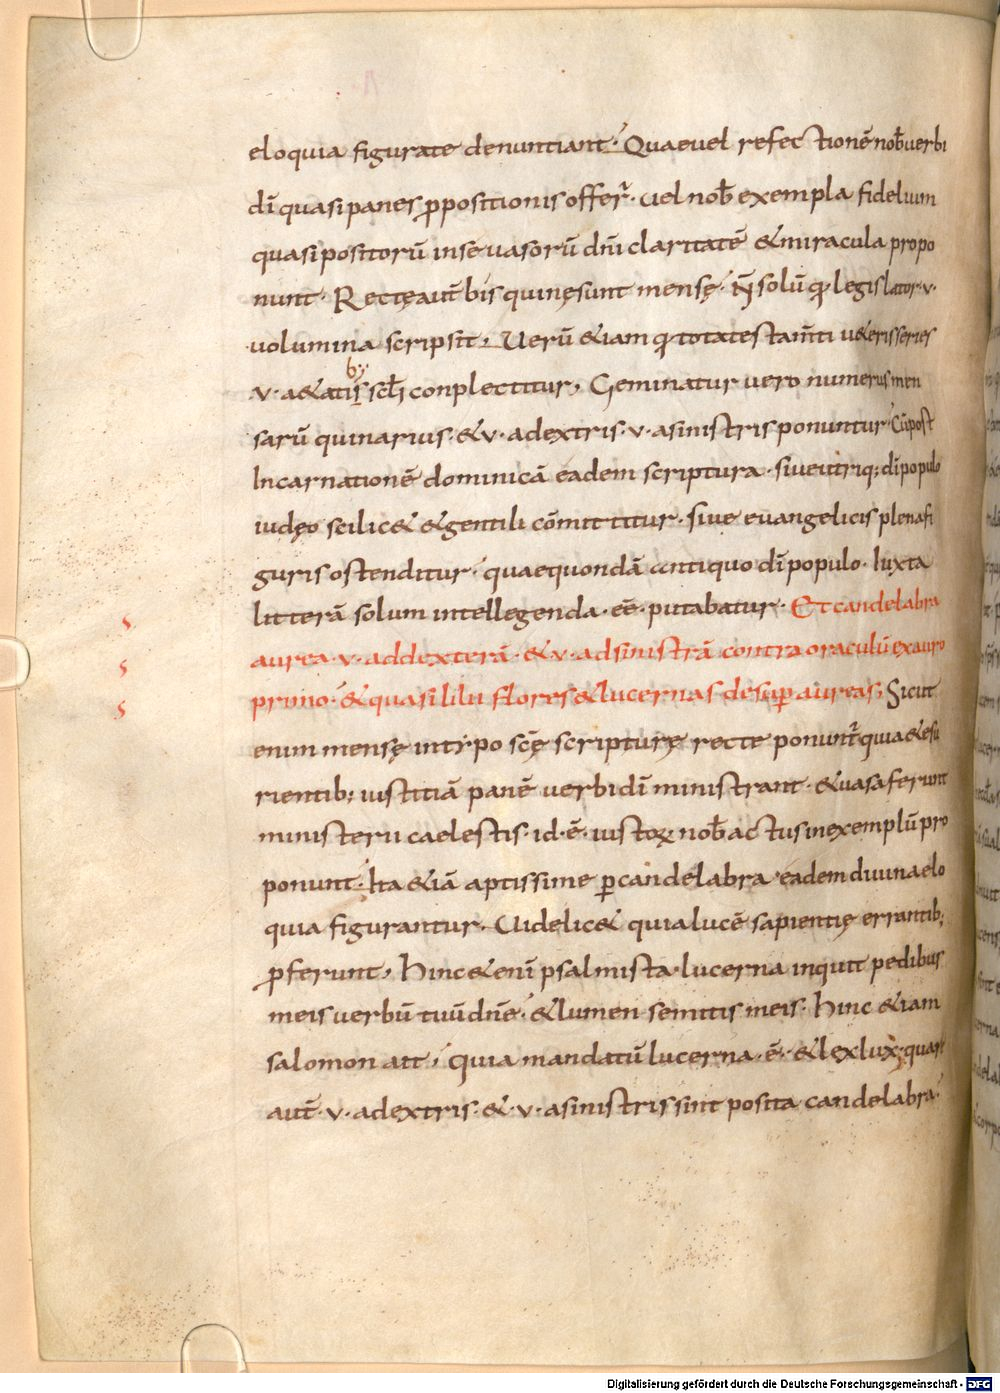 eloquia figurate denuntiant· Quaeuel refectionē nob̄ uerbi
dī quasi panes ꝓpositionis offer̄· uel nob̄ exempla fidelium
quasi positorū in se uasorū dn̄i claritatē &miracula propo
nunt· Rectę aut̄ bis quinę sunt mensę· N̄ solū ꝙ legislator·v·
uolumina scripsit, Uerū &iam ꝙ tota testam̄ti u&eris series
·v· a&atis b; scl̄i conplectitur, Geminatur uero numerus men
sarū quinarius· &·v· adextris·v· asinistris ponuntur· Cū post
Incarnationē dominicā eadem scriptura· siue utriq; dī populo
iudęo scilic& &gentili cōmittitur· siue euangelicis plena fi
guris ostenditur· quae quondā antiquo dī populo· Iuxta
litterā solum intellegenda· eē· putabatur· Et candelabra
aurea·v· addexterā· &·v· adsinistrā contra oraculū exauro
primo· &quasi lilii flores &lucernas desuꝑ aureas; Sicut
enim mensę in tipo scę̄ scripturę recte ponunt̄ quia &esu
rientib; iustitiā panē uerbi dī ministrant· &uasa ferunt
ministerii caelestis· id·ē· iustoꝝ nob̄ actus in exemplū pro
ponunt· Ita &iā aptissime ꝑ candelabra eadem diuina elo
quia figurantur· Uidelic& quia lucē sapientię errantib;
ꝓferunt, hinc &enī psalmista· lucerna inquit pedibus
meis uerbū tuū dn̄e· &lumen semitis meis· hinc &iam
salomon ait, quia mandatū lucerna·ē· &lex lux; quare
aut̄·v· adextris· &·v· asinistris sint posita candelabra·
s
s
s
Digitalisierung gefördert durch die Deutsche Forschungsgemeinschaft - DFG